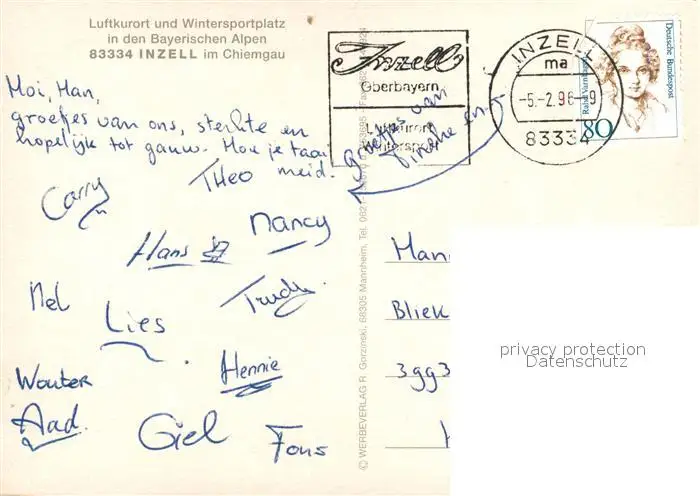 Luftkurort und Wintersportplatz
in den Bayerischen Alpen
83334 INZELL im Chiemgau
Inzell
Oberbayern
Luftkurort
Wintersport
INZELL
ma
-5.-2.96-9
83334
Deutsche Bundespost
80
Moi, Man,
groetjes van ons, sterkte en
hopelijk tot gauw. Hou je taai
meid.
groetjes van
Tineke en
Theo
Carry
Nancy
Hans
Nel
Trudy.
Lies
Hennie
Wouter
Aad.
Giel
Fons
© WERBEVERLAG R. Gorzinski, 68305 Mannheim, Tel.
Man
Bliek
3993
privacy protection
Datenschutz